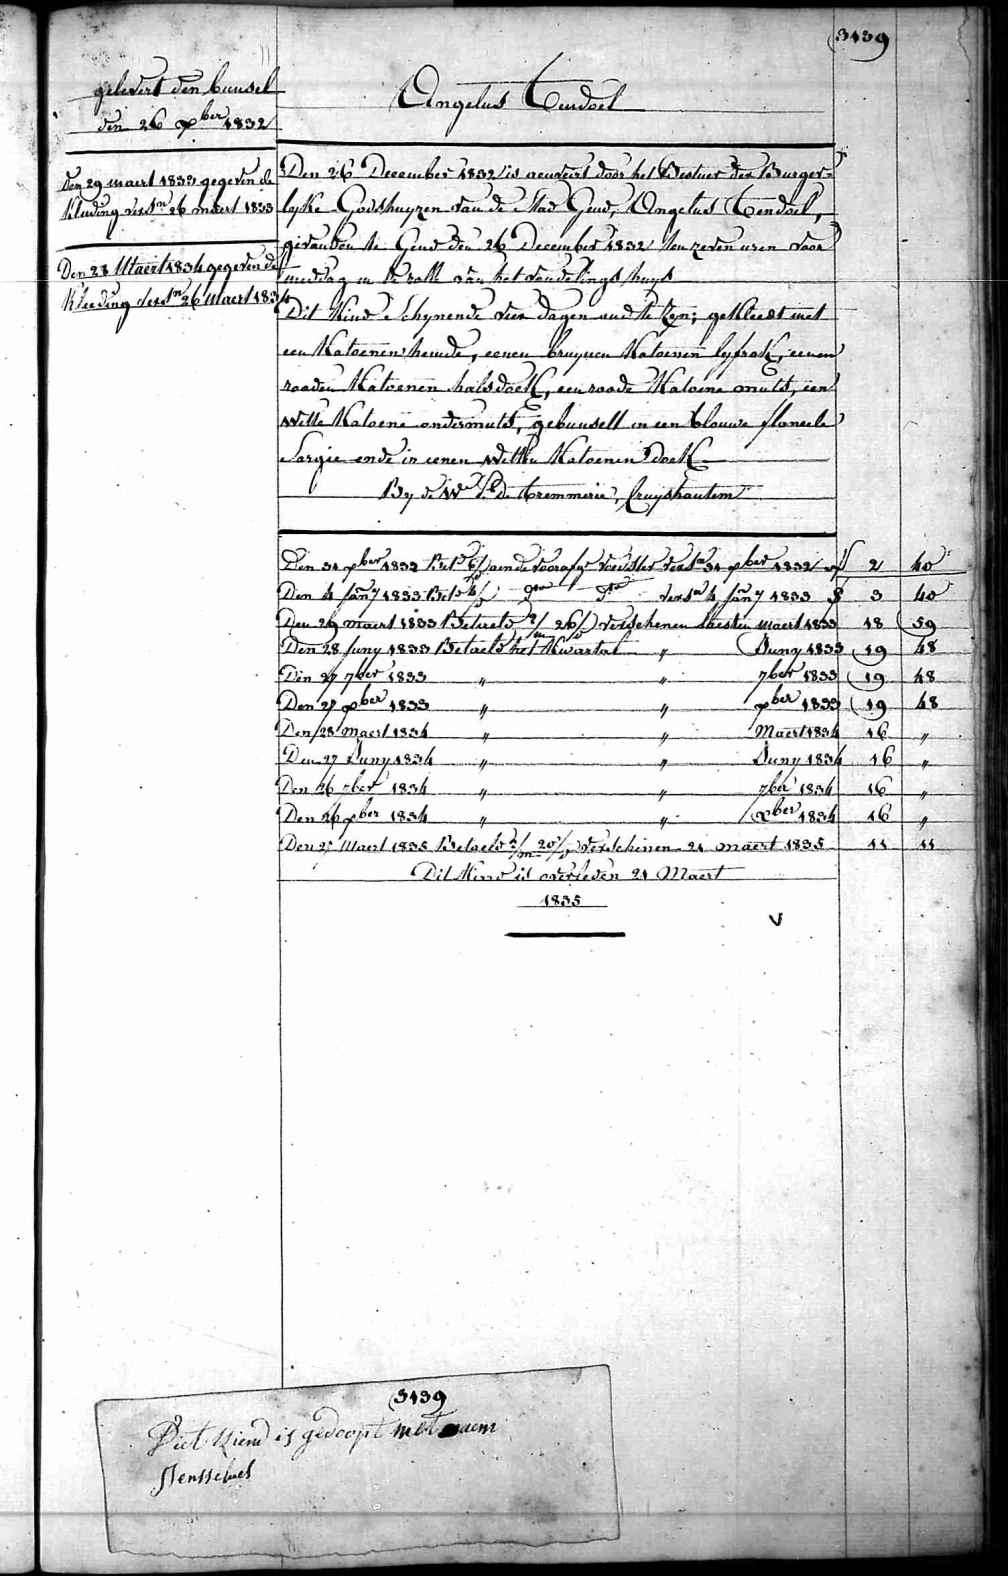 3139
gelevert den bunsel
den 26 xber 1832
Den 29 maert 1833 gegeven de
Kleeding versn 26 maert 1833
Den 28 Maert 1834 gegeven de
Kleeding versn 26 Maert 1834
Angelus Tendoel
Den 26 December 1832 is aenveirt door het Bestier der Burger-
lyke Godshuyzen van de Stad Gend, Angelus Tendoel,
gevonden te Gend den 26 December 1832 ten zeven uren voor
middag in de rolle van het vondelings huys
Dit Kind schynende vier dagen oud te zyn; gekleedt met
een Katoenen hemde, eenen bruynen Katoenen lyfrok, eenen
rooden Katoenen halsdoek, een roode Katoene muts, een
witte Katoene ondermuts, gebunselt in een blauwe flaneele
Sargie ende in eenen witten Katoenen doek
By de We De Cremmerie, Cruyshautem
Den 31 xber 1832 Bet. 6/D aen de voorafge voedster versn 31 xber 1832 f 2 40
Den 4 Jany 1833 Bet. 4/D do do versn 4 Jany 1833 $ 3 40
Den 29 maert 1833 Betaeld 2/m 26/D verschenen laesten maert 1833 18 59
Den 28 Juny 1833 Betaeld het Kwartael " Juny 1833 19 48
Den 27 7ber 1833 " " 7ber 1833 19 48
Den 27 xber 1833 " " xber 1833 19 48
Den 28 maert 1834 " " Maert 1834 16 "
Den 27 Juny 1834 " " Juny 1834 16 "
Den 26 7ber 1834 " " 7ber 1834 16 "
Den 26 xber 1834 " " xber 1834 16 "
Den 27 Maert 1835 Betaeld 2/m 20/D verschenen 21 maert 1835 11 11
Dit Kind is overleden 21 Maert
1835
V
3139
Diet Kiend is gedoopt met naem